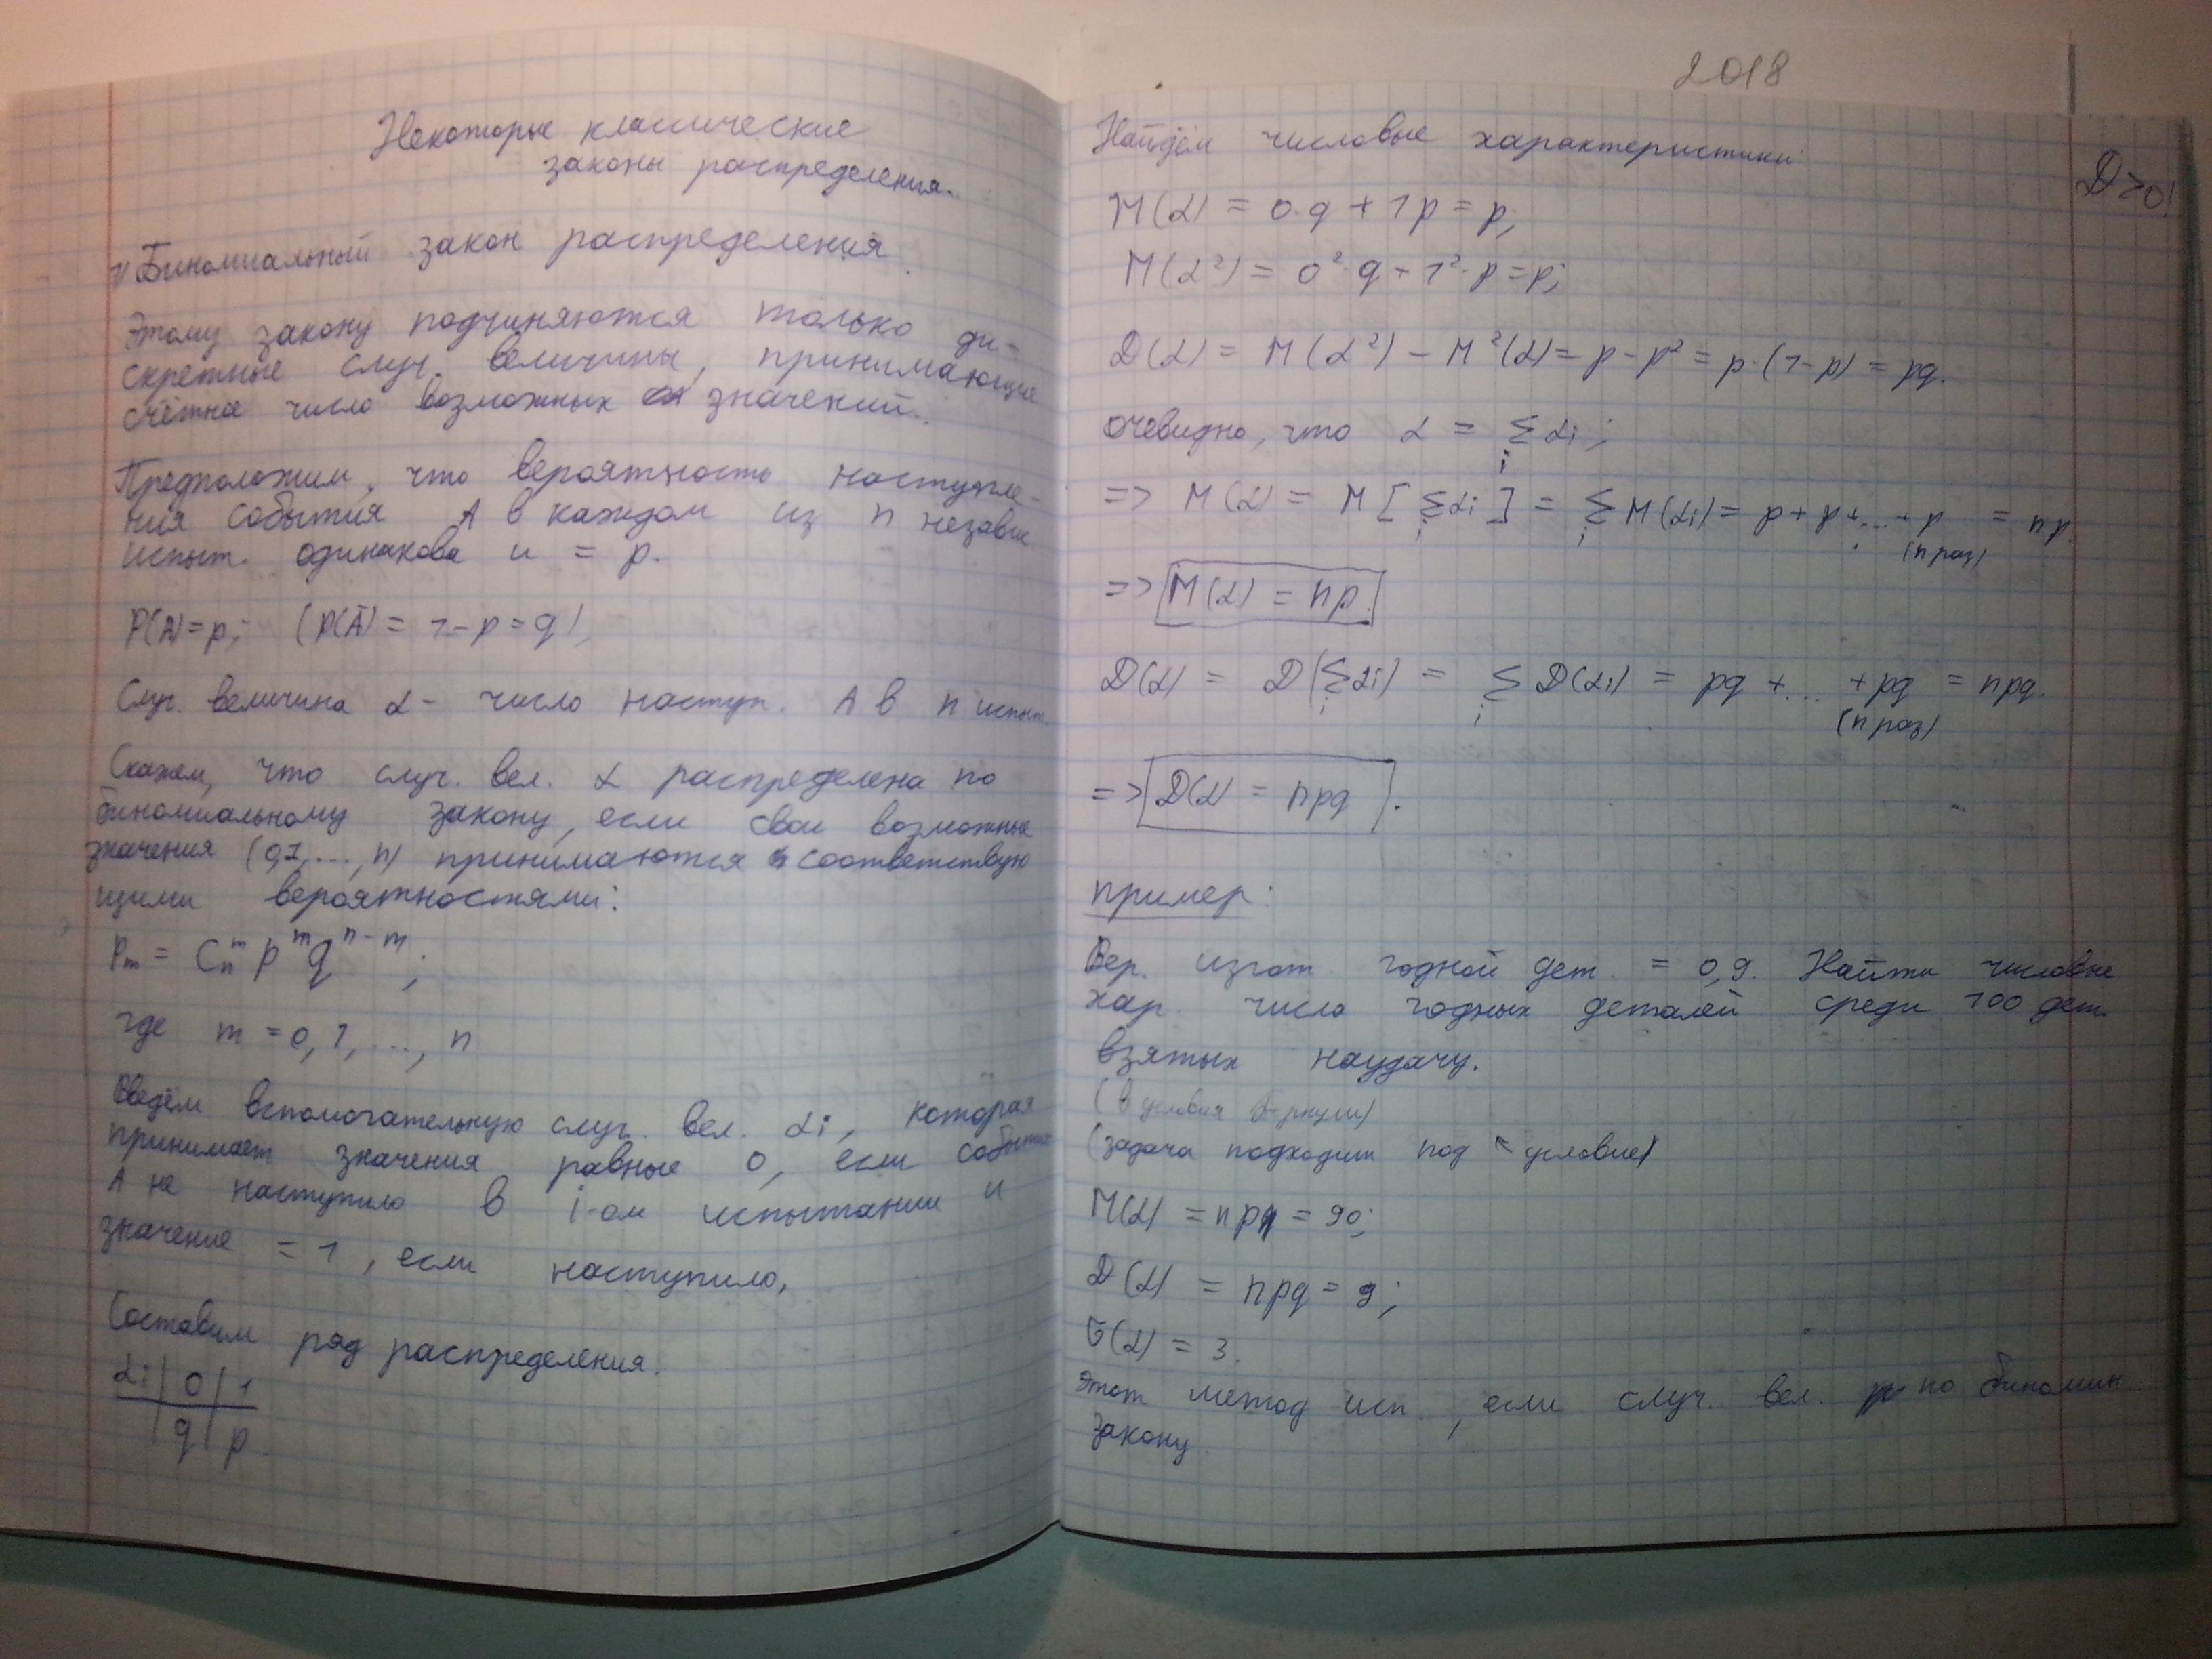 Некоторые классические
законы распределения.
1) Биномиальный закон распределения
Этому закону подчиняются только ди-
скретные случ. величины, принимающие
счётное число возможных значений.
Предположим, что вероятность наступле-
ния события A в каждом из n независ
испыт. одинакова и = p.
P(A)=p; (P(Ā) = 1-p = q),
Случ. величина α - число наступ. A в n испыт.
Скажем, что случ. вел. α распределена по
биномиальному закону, если свои возможные
значения (0,1,...,n) принимаются с соответствую
щими вероятностями:
Pₘ = Cₙᵐ pᵐ qⁿ⁻ᵐ;
где m = 0, 1, ..., n
Введём вспомогательную случ. вел. αi, которая
принимает значения равные 0, если событие
A не наступило в i-ом испытании и
значение = 1, если наступило,
Составим ряд распределения.
αi | 0 | 1
| q | p
2018
Найдём числовые характеристики
D>0!
M(α) = 0·q + 1p = p;
M(α²) = 0²·q + 1²·p = p;
D(α) = M(α²) - M²(α) = p - p² = p·(1-p) = pq.
очевидно, что α = Σ αi;
i
=> M(α) = M[Σαi] = Σ M(αi) = p + p + ... + p = np.
i i (n раз)
=> M(α) = np.
D(α) = D(Σαi) = Σ D(αi) = pq + ... + pq = npq.
i i (n раз)
=> D(α) = npq.
пример:
Вер. изгот. годной дет. = 0,9. Найти числовые
хар. числа годных деталей среди 100 дет.
взятых наудачу.
(в условия)
(задача подходит под ↖ условие)
M(α) = np = 90;
D(α) = npq = 9;
σ(α) = 3.
Этот метод исп., если случ. вел. по биномин
закону.